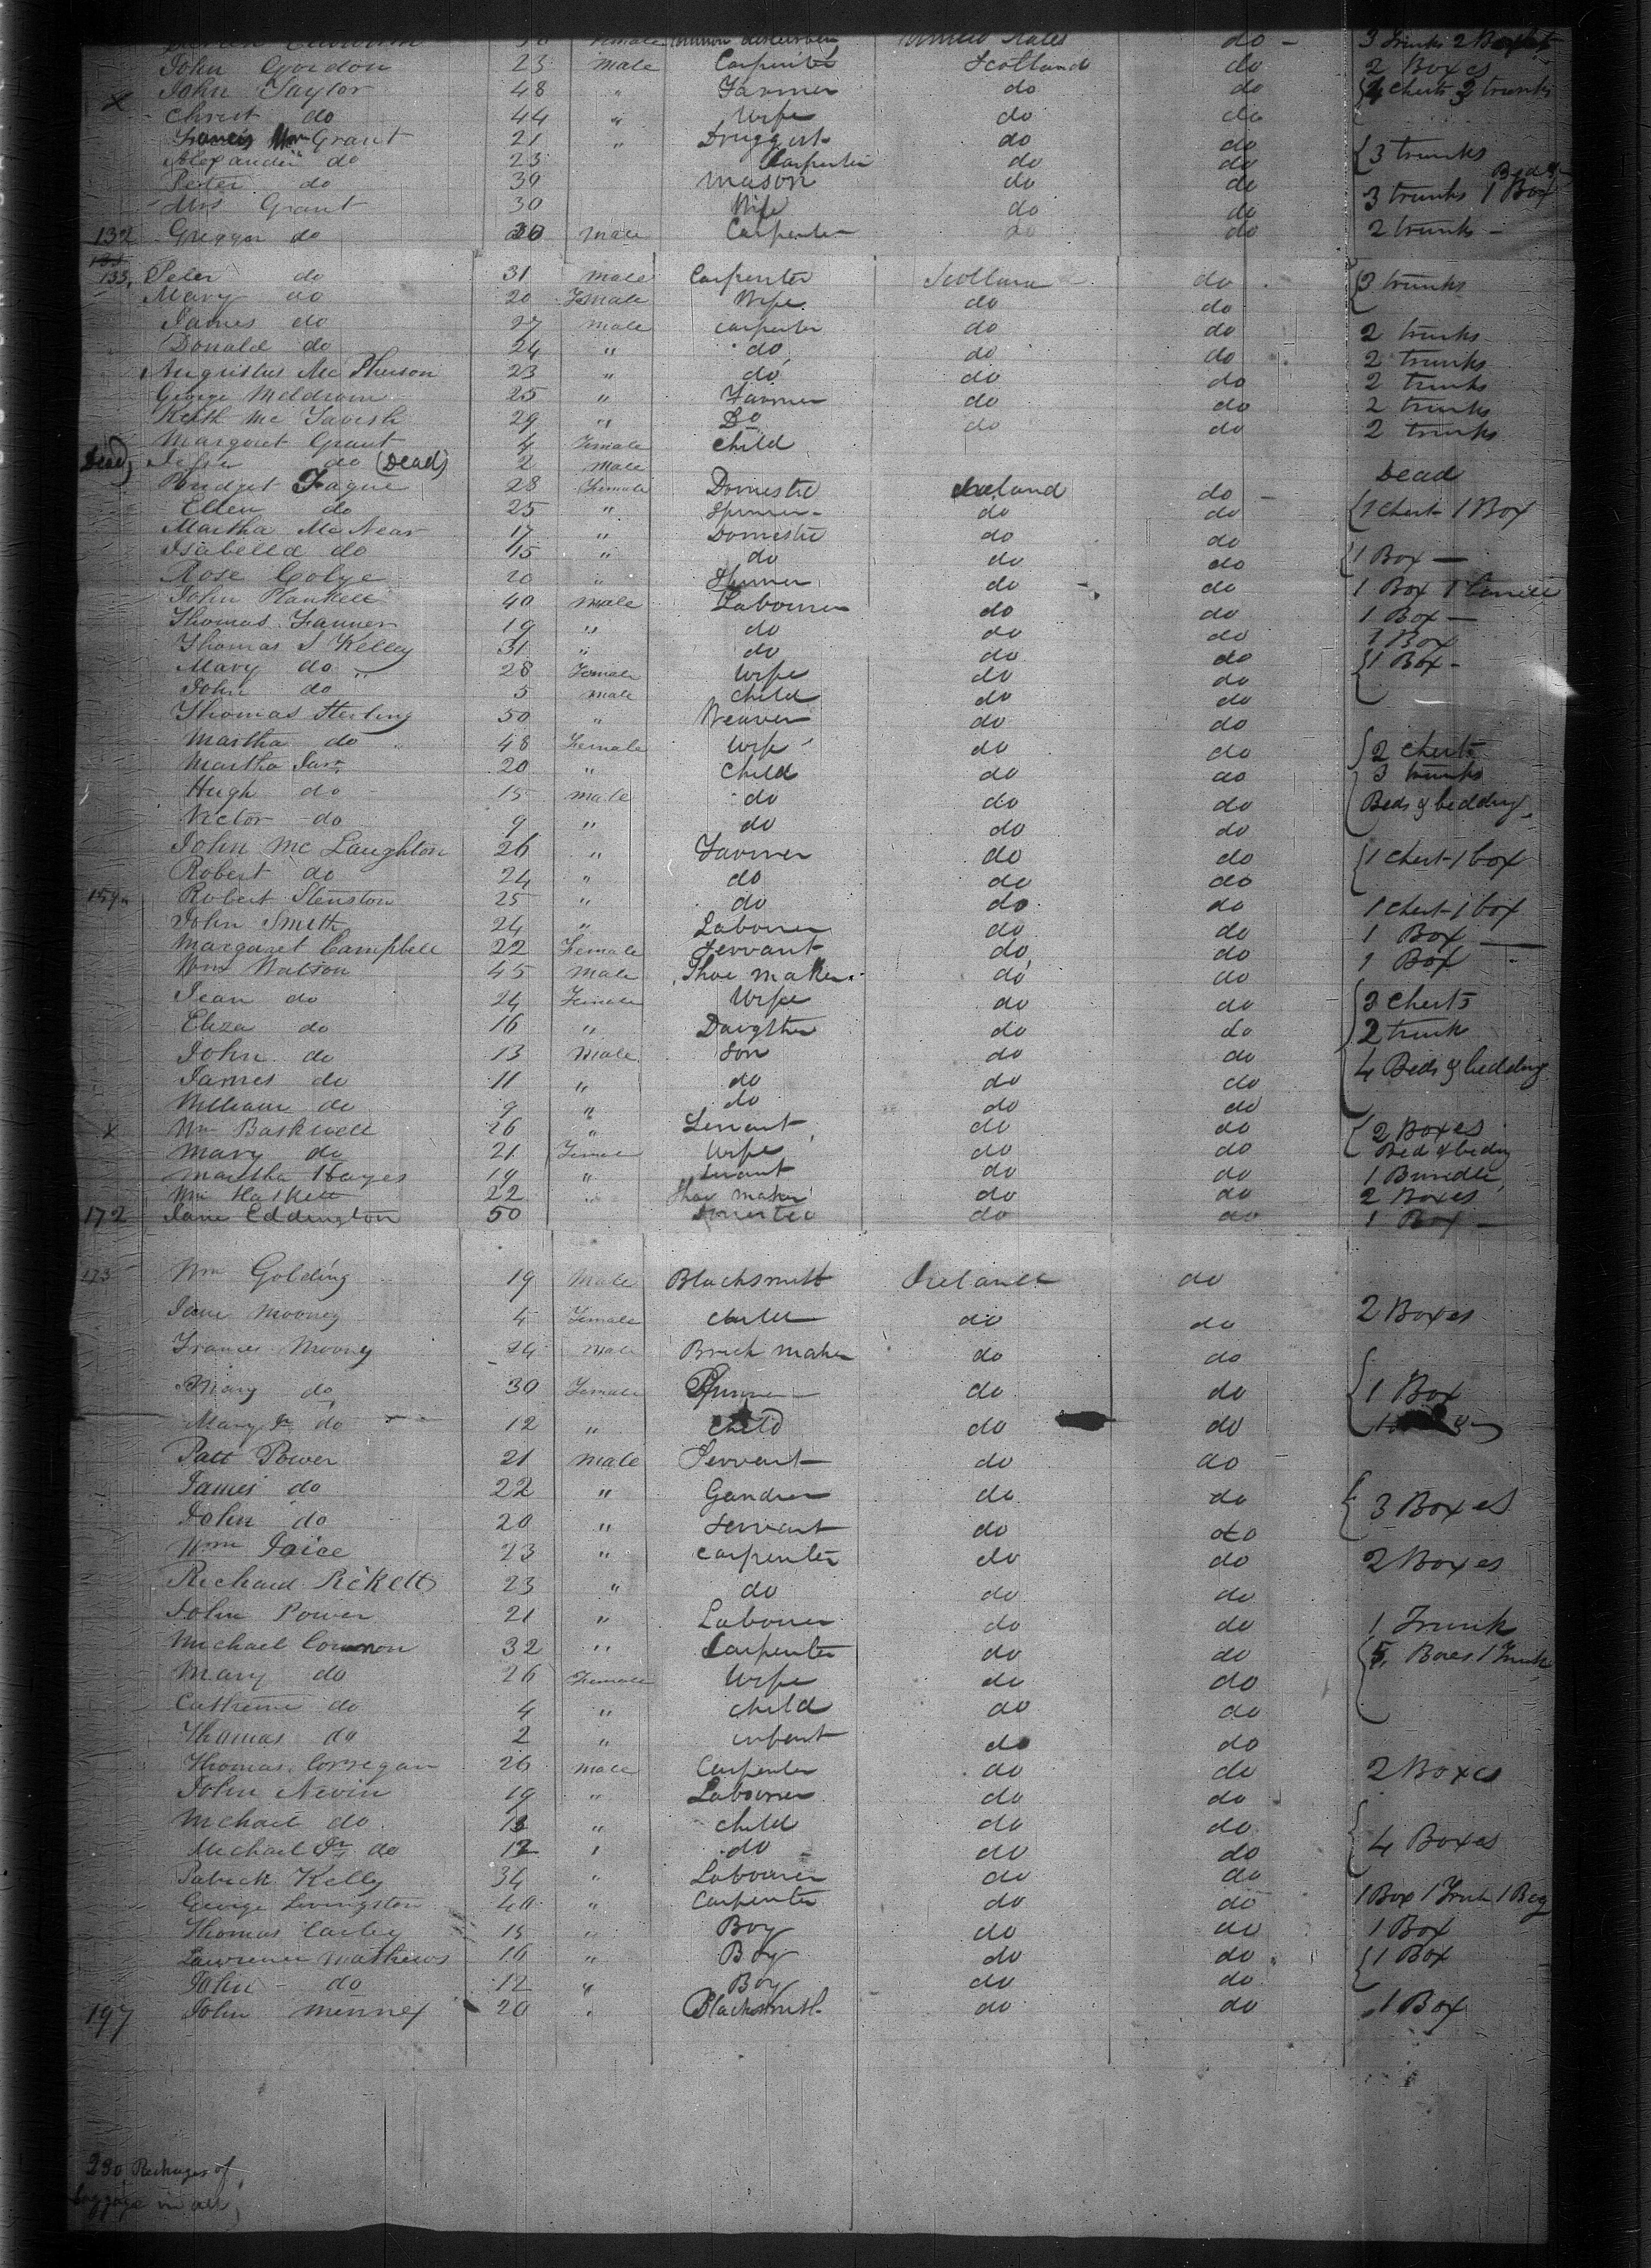 Female United States do - 3 Trunks 2
John Gordon 23 male Carpenter Scotland do 2 Boxes
X John Taylor 48 " Farmer do do { chests 3 trunks
Christ do 44 " Wife do do
Francis Grant 21 " Druggist do do
Alexander do 23 Carpenter do do { 3 trunks
Peter do 39 mason do do 3 trunks 1 Box
Mrs Grant 30 Wife do do
132 Greggor do male Carpenter do do 2 trunks -
133, Peter do 31 male Carpenter Scotland do { 3 trunks
Mary do 20 Female Wife do do
James do 27 male carpenter do do 2 trunks
Donald do 24 " do do do 2 trunks
Augustus Mc Pherson 23 " do do do 2 trunks
George Meldrum 25 " Farmer do do 2 trunks
Keith Mc Tavish 29 " Do do do 2 trunks
Margaret Grant 4 Female Child
Dead, do (Dead) 2 male Dead
Bridget Fague 28 Female Domestic Ireland do -
Ellen do 25 " Spinner - do do { 1 Chest 1 Box
Martha McNear 17 " Domestic do do
Isabella do 15 " do do do { 1 Box -
Rose 20 " Spinner do - do 1 Box 1
John Plankett 40 male Labourer do do 1 Box -
Thomas Fanner 19 " do do do 1 Box
Thomas J Kelley 31 " do do do { 1 Box -
Mary do " 28 Female Wife do do
John do 5 male child do do
Thomas Sterling 50 " Weaver do do
Martha do 48 Female Wife do do { 2 chests
Martha Junr 20 " Child do do 3 trunks
Hugh do 15 male do do do Beds & bedding,
Victor do 9 " do do do
John Mc Laughton 26 " Farmer do do { 1 chest - 1 box
Robert do 24 " do do do
159 Robert Stenston 25 " do do do 1 chest - 1 box
John Smith 24 " Labourer do do 1 Box
Margaret Campbell 22 Female Servant do do 1 Box
Wm Watson 45 male Shoe maker do do
Jean do 24 Female Wife do do { 3 Chests
Eliza do 16 " Daugther do do 2 trunk
John do 13 Male Son do do 4 Beds & bedding
James do 11 " do do do
William do 9 " do do do
X Wm Baskwell 26 " Servant do do { 2 Boxes
Mary do 21 Female Wife do do Bed & beding
Martha Hayes 19 " servant do do 1 Bundle,
Wm Haskett 22 " Shoe maker do do 2 Boxes
172 Jane Eddington 50 domestic do do 1 Box -
173 Wm Golding 19 Male Blacksmith Ireland do
Jane Mooney 4 Female child do do 2 Boxes
Frances Moony 24 Male Brick maker do do
Mary do 30 Female Spinner - do do { 1 Box
Mary Jr do 12 " child do do
Patt Power 21 Male Servant do do
James do 22 " Gandner do do { 3 Boxes
John do 20 " servant do do
Wm Joice 23 " carpenter do do 2 Boxes
Richard Ricketts 23 " do do do
John Power 21 " Labourer do do 1 Trunk
Michael Connon 32 " Carpenter do do { 5, Boxes 1 Trunk
Mary do 26 Female Wife do do
Cathrine do 4 " child do do
Thomas do 2 " infant do do
Thomas Corregan 26 male Carpenter do do 2 Boxes
John Nevin 19 " Labourer do do
Michael do 13 " child do do
Michael Jr do 12 " do do do { 4 Boxes
Patrick Kelly 34 " Labourer do do
George Livingston 40 " Carpenter do do 1 Box 1 Trunk 1 Bag
Thomas Carley 15 " Boy do do 1 Box
Lawrence Mathews 16 " Boy do do { 1 Box
John do 12 " Boy do do
197 John Menney 20 " Blacksmith do do 1 Box
230 Packages of
baggage in all,